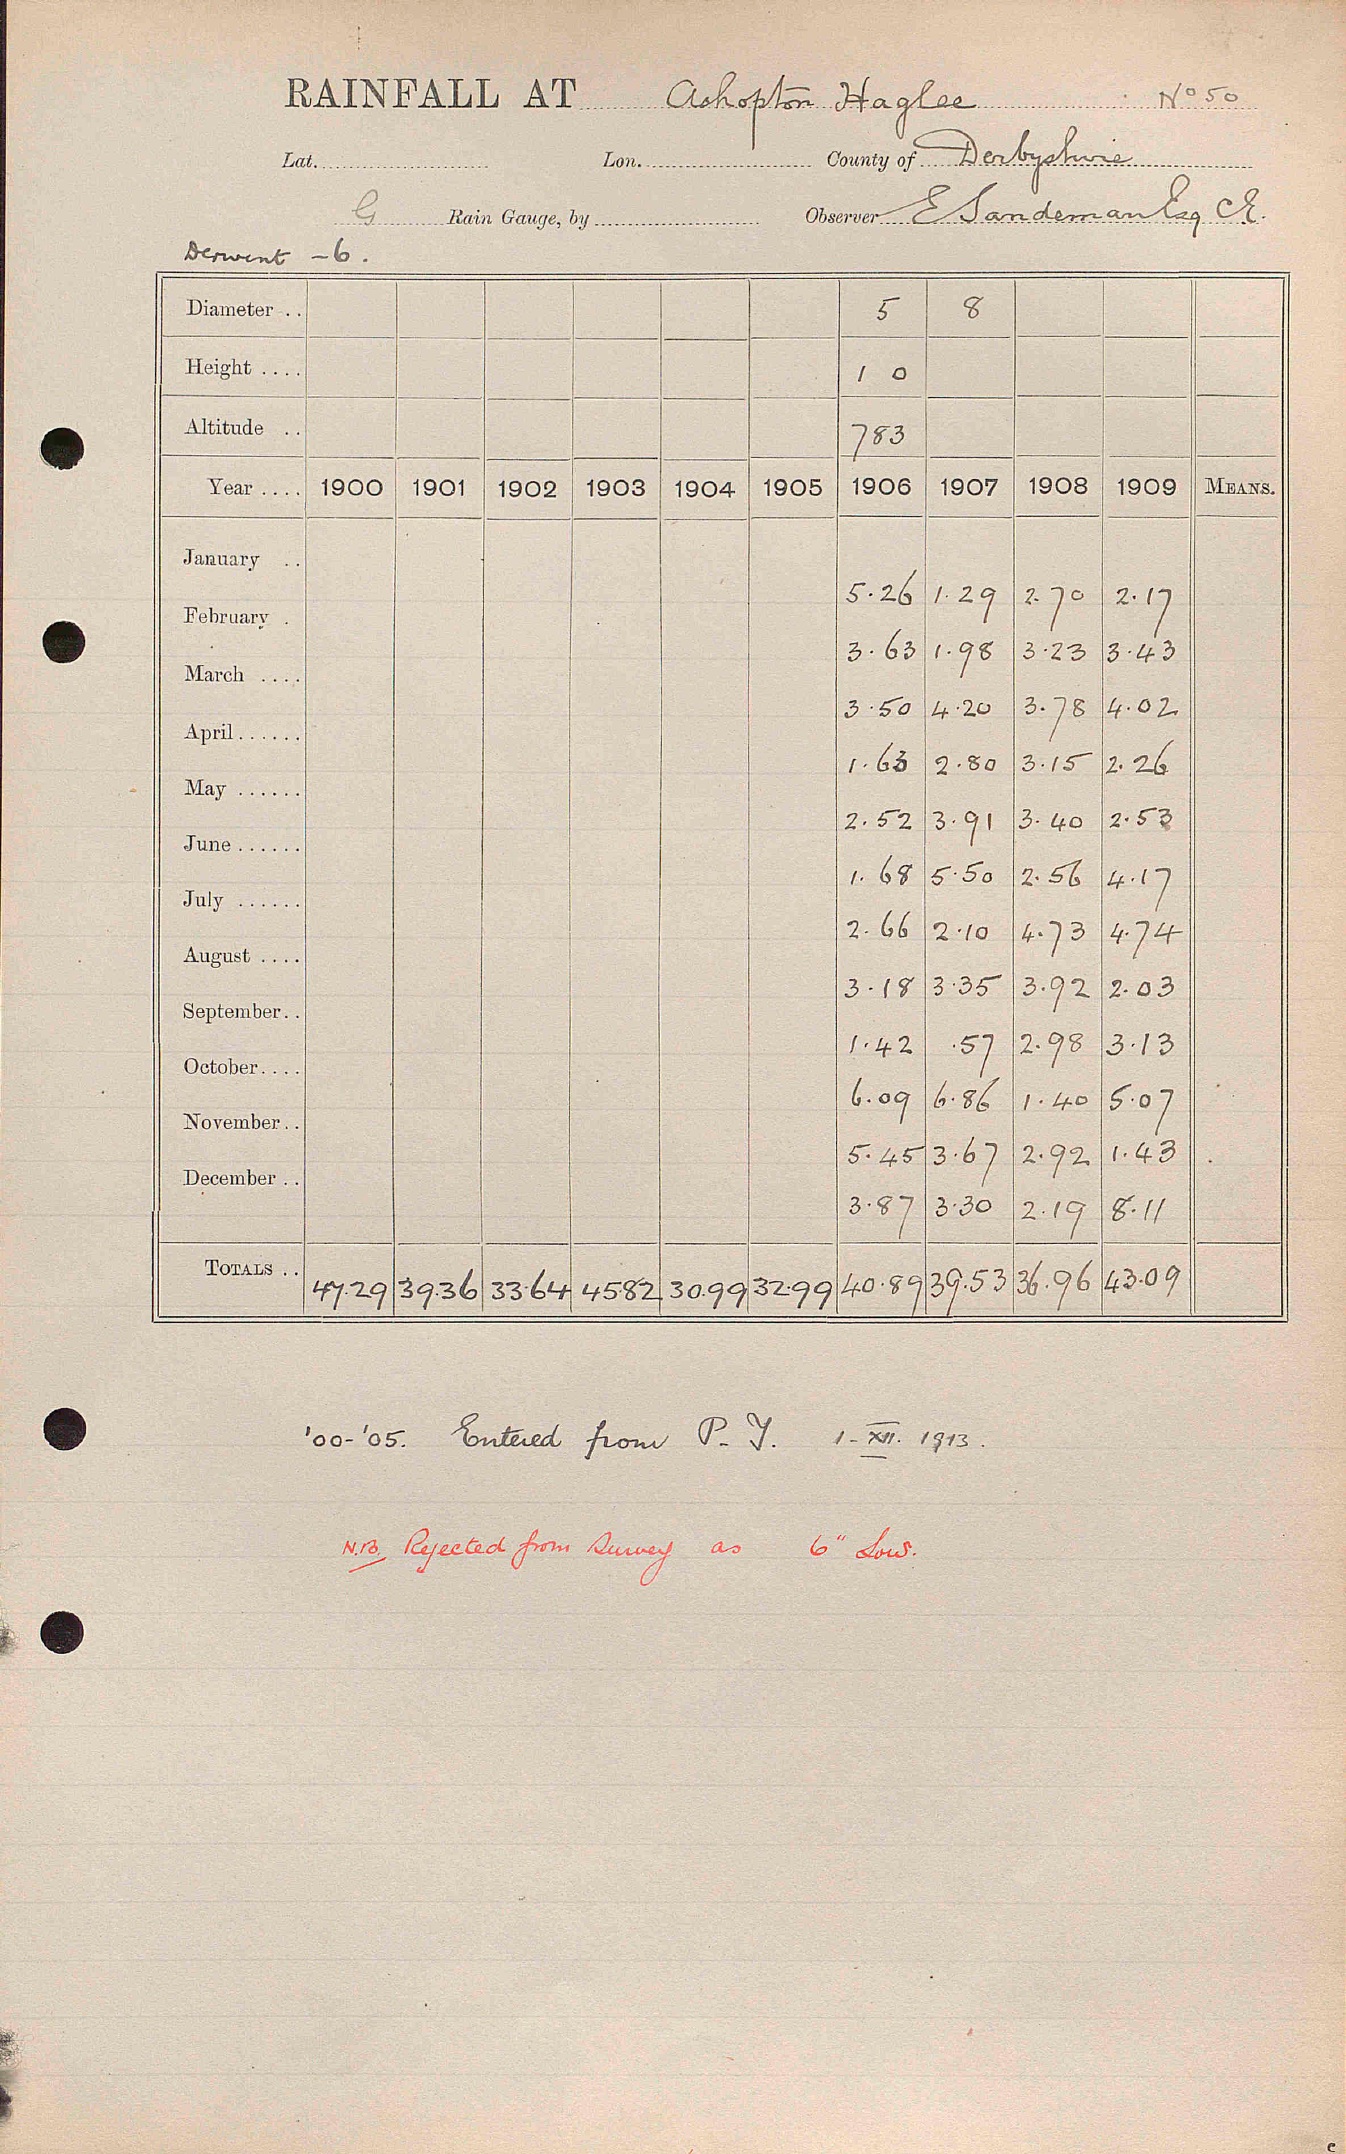 RAINFALL AT Ashopton Haglee No 50
Lat. Lon. County of Derbyshire
G Rain Gauge, by Observer E Sandeman Esq CE.
Derwent - 6.
Diameter .. 5 8
Height .... 1 0
Altitude .. 783
Year .... 1900 1901 1902 1903 1904 1905 1906 1907 1908 1909 MEANS.
January .. 5.26 1.29 2.70 2.17
February . 3.63 1.98 3.23 3.43
March .... 3.50 4.20 3.78 4.02
April...... 1.63 2.80 3.15 2.26
May ...... 2.52 3.91 3.40 2.53
June...... 1.68 5.50 2.56 4.17
July ...... 2.66 2.10 4.73 4.74
August .... 3.18 3.35 3.92 2.03
September.. 1.42 .57 2.98 3.13
October.... 6.09 6.86 1.40 5.07
November.. 5.45 3.67 2.92 1.43
December .. 3.87 3.30 2.19 8.11
TOTALS .. 47.29 39.36 33.64 45.82 30.99 32.99 40.89 39.53 36.96 43.09
'00-'05. Entered from P. Y. 1-XII. 1913.
N.B. Rejected from Survey as 6" Low.